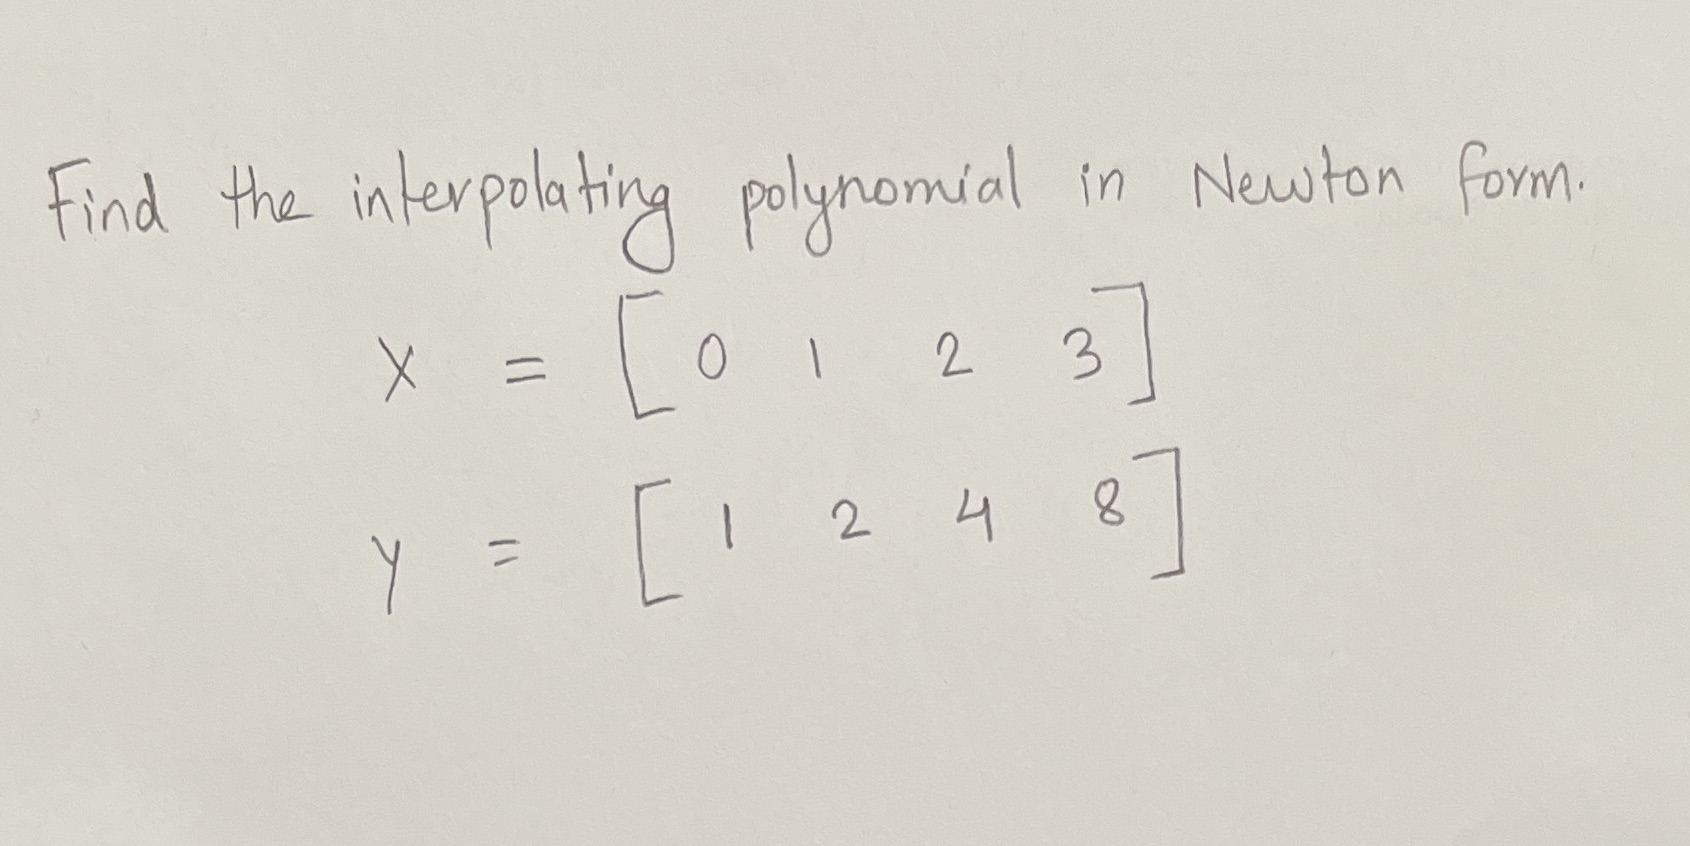 Find the interpolating polynomial in Newton form.
x = [ 0 1 2 3 ]
y = [ 1 2 4 8 ]